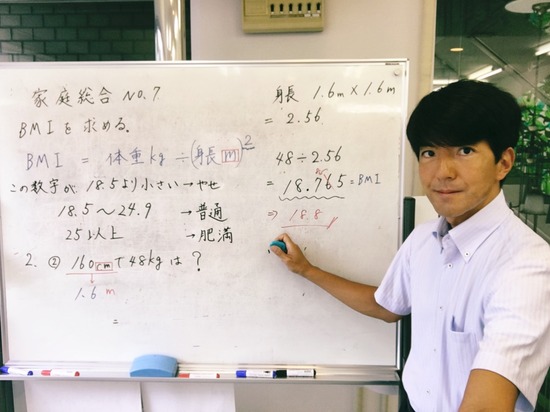 家庭総合 No.7
BMIを求める.
BMI = 体重kg÷(身長m)²
この数字が 18.5より小さい→やせ
18.5～24.9 →普通
25以上 →肥満
2. ② 160cmで48kgは?
1.6 m
=
身長 1.6m×1.6m
= 2.56
48÷2.56
= 18.765=BMI
⇒ 18.8